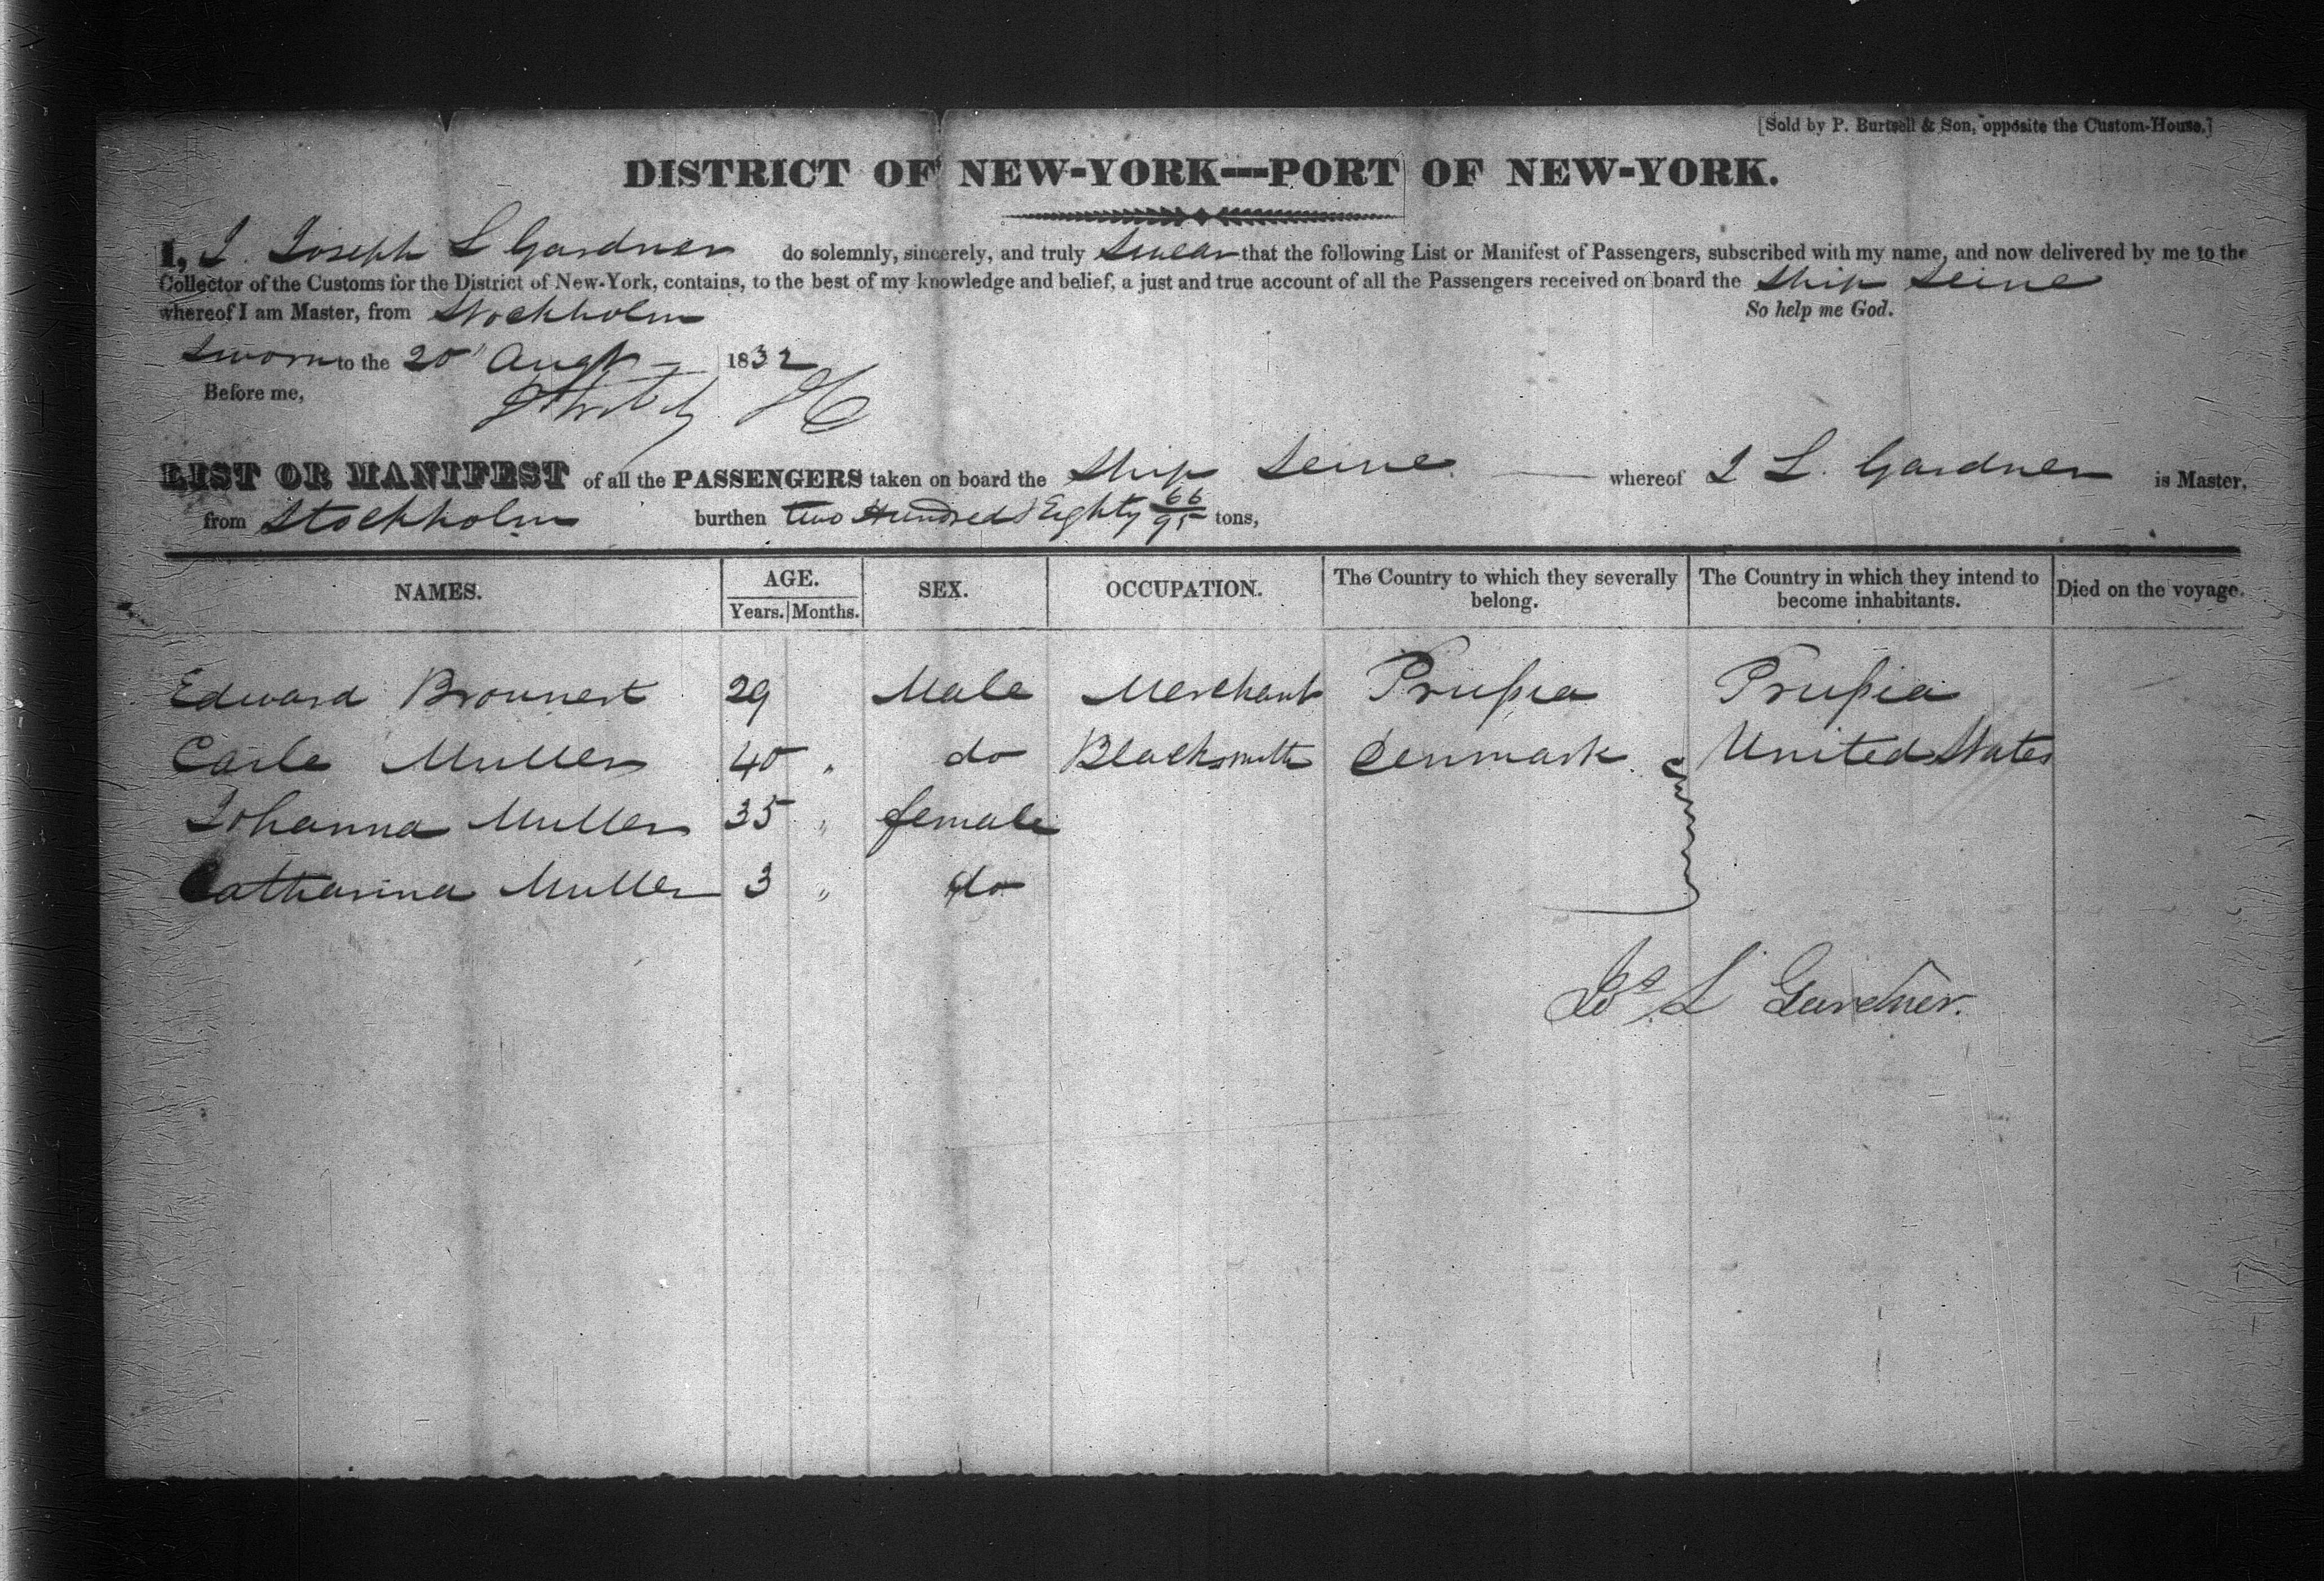 [Sold by P. Burtsell & Son, opposite the Custom-House.]
DISTRICT OF NEW-YORK---PORT OF NEW-YORK.
I, I. Joseph L Gardner do solemnly, sincerely, and truly Swear that the following List or Manifest of Passengers, subscribed with my name, and now delivered by me to the
Collector of the Customs for the District of New-York, contains, to the best of my knowledge and belief, a just and true account of all the Passengers received on board the Ship Seine
whereof I am Master, from Stockholm So help me God.
Sworn to the 20 Augt 1832
Before me,
LIST OR MANIFEST of all the PASSENGERS taken on board the Ship Seine whereof J L. Gardner is Master,
from Stockholm burthen two Hundred Eighty 66/95 tons,
NAMES. AGE. SEX. OCCUPATION. The Country to which they severally belong. The Country in which they intend to become inhabitants. Died on the voyage.
Years. Months.
Edward Brounert 29 Male Merchant Prussia Prussia
Carle Muller 40 " do Blacksmith Denmark United States
Johanna Muller 35 " female
Catharina Muller 3 " do
Jos L Gardner.